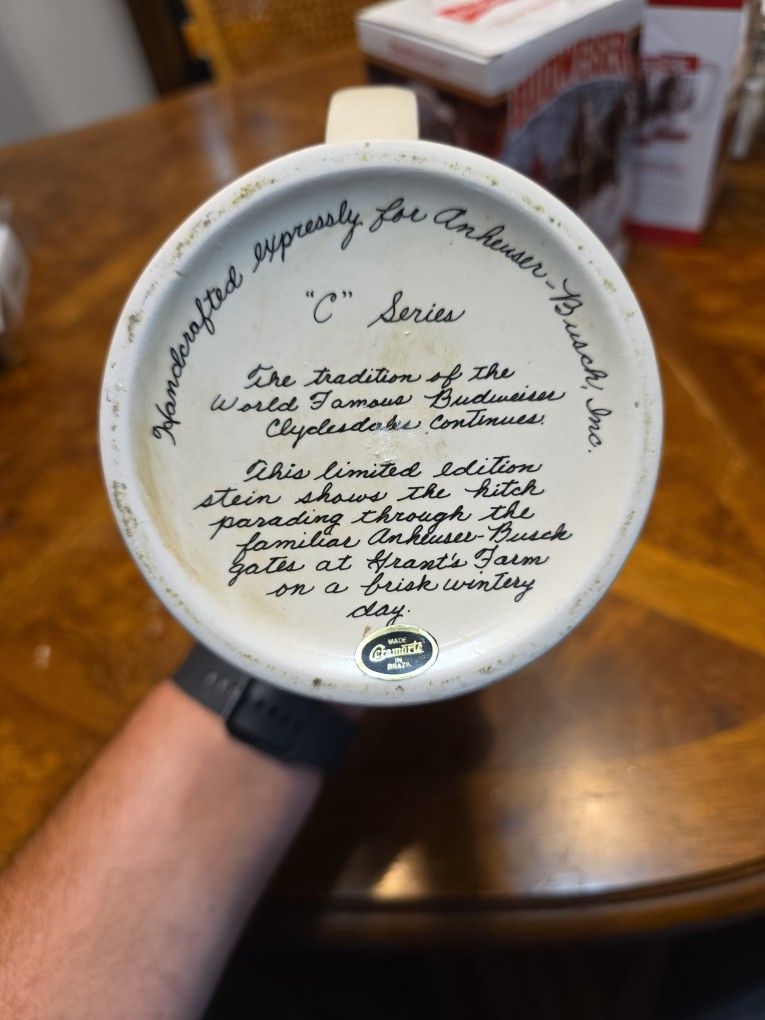 BUDWEISER
Handcrafted expressly for Anheuser-Busch, Inc.
"C" Series
The tradition of the
World Famous Budweiser
Clydesdales continues.
This limited edition
stein shows the hitch
parading through the
familiar Anheuser-Busch
gates at Grant's Farm
on a brisk wintery
day.
MADE
Ceramarte
IN
BRAZIL